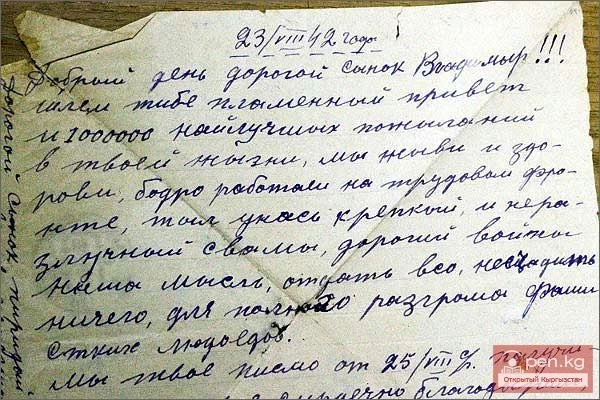 23/VIII 42 года
Добрый день дорогой сынок Владимыр!!!
шлем тибе пламенный привет
и 1000000 найлучшых пожыланий
в твоей жызни, мы жывы и здо-
ровы, бодро работаем на трудовом фро-
нте, тыл унась крепкый, и нера-
злучный свамы, дорогий войны
наша мысль, отдать всо, нещадить
ничего, для полного разгрома фаши
стких людоедов.
Мы твое писмо от 25/VIII с/г. получи
сердечно благодарои
Дорогой сынок, пиридай
Open.kg
Открытый Кыргызстан